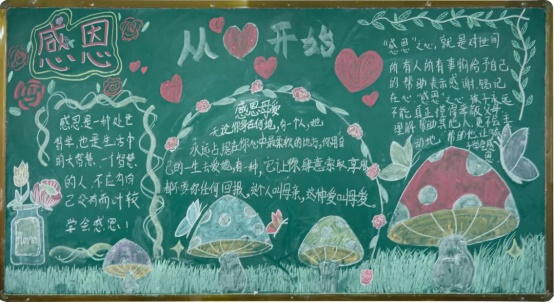 感恩
从心开始
感恩是一种处世
哲学,也是生活中
的大智慧,一个智慧
的人,不应为自
己没有而计较
学会感恩!
感恩母爱
无论你身在何地,有一个人,她
永远占据在你心中最柔软的地方,你用自
己的一生去爱她,有一种,它让你肆意索取,享用
却不要你任何回报,这个人叫母亲,这种爱叫母爱。
"感恩"之心,就是对世间
所有人所有事物给予自己
的帮助表示感谢,铭记
在心